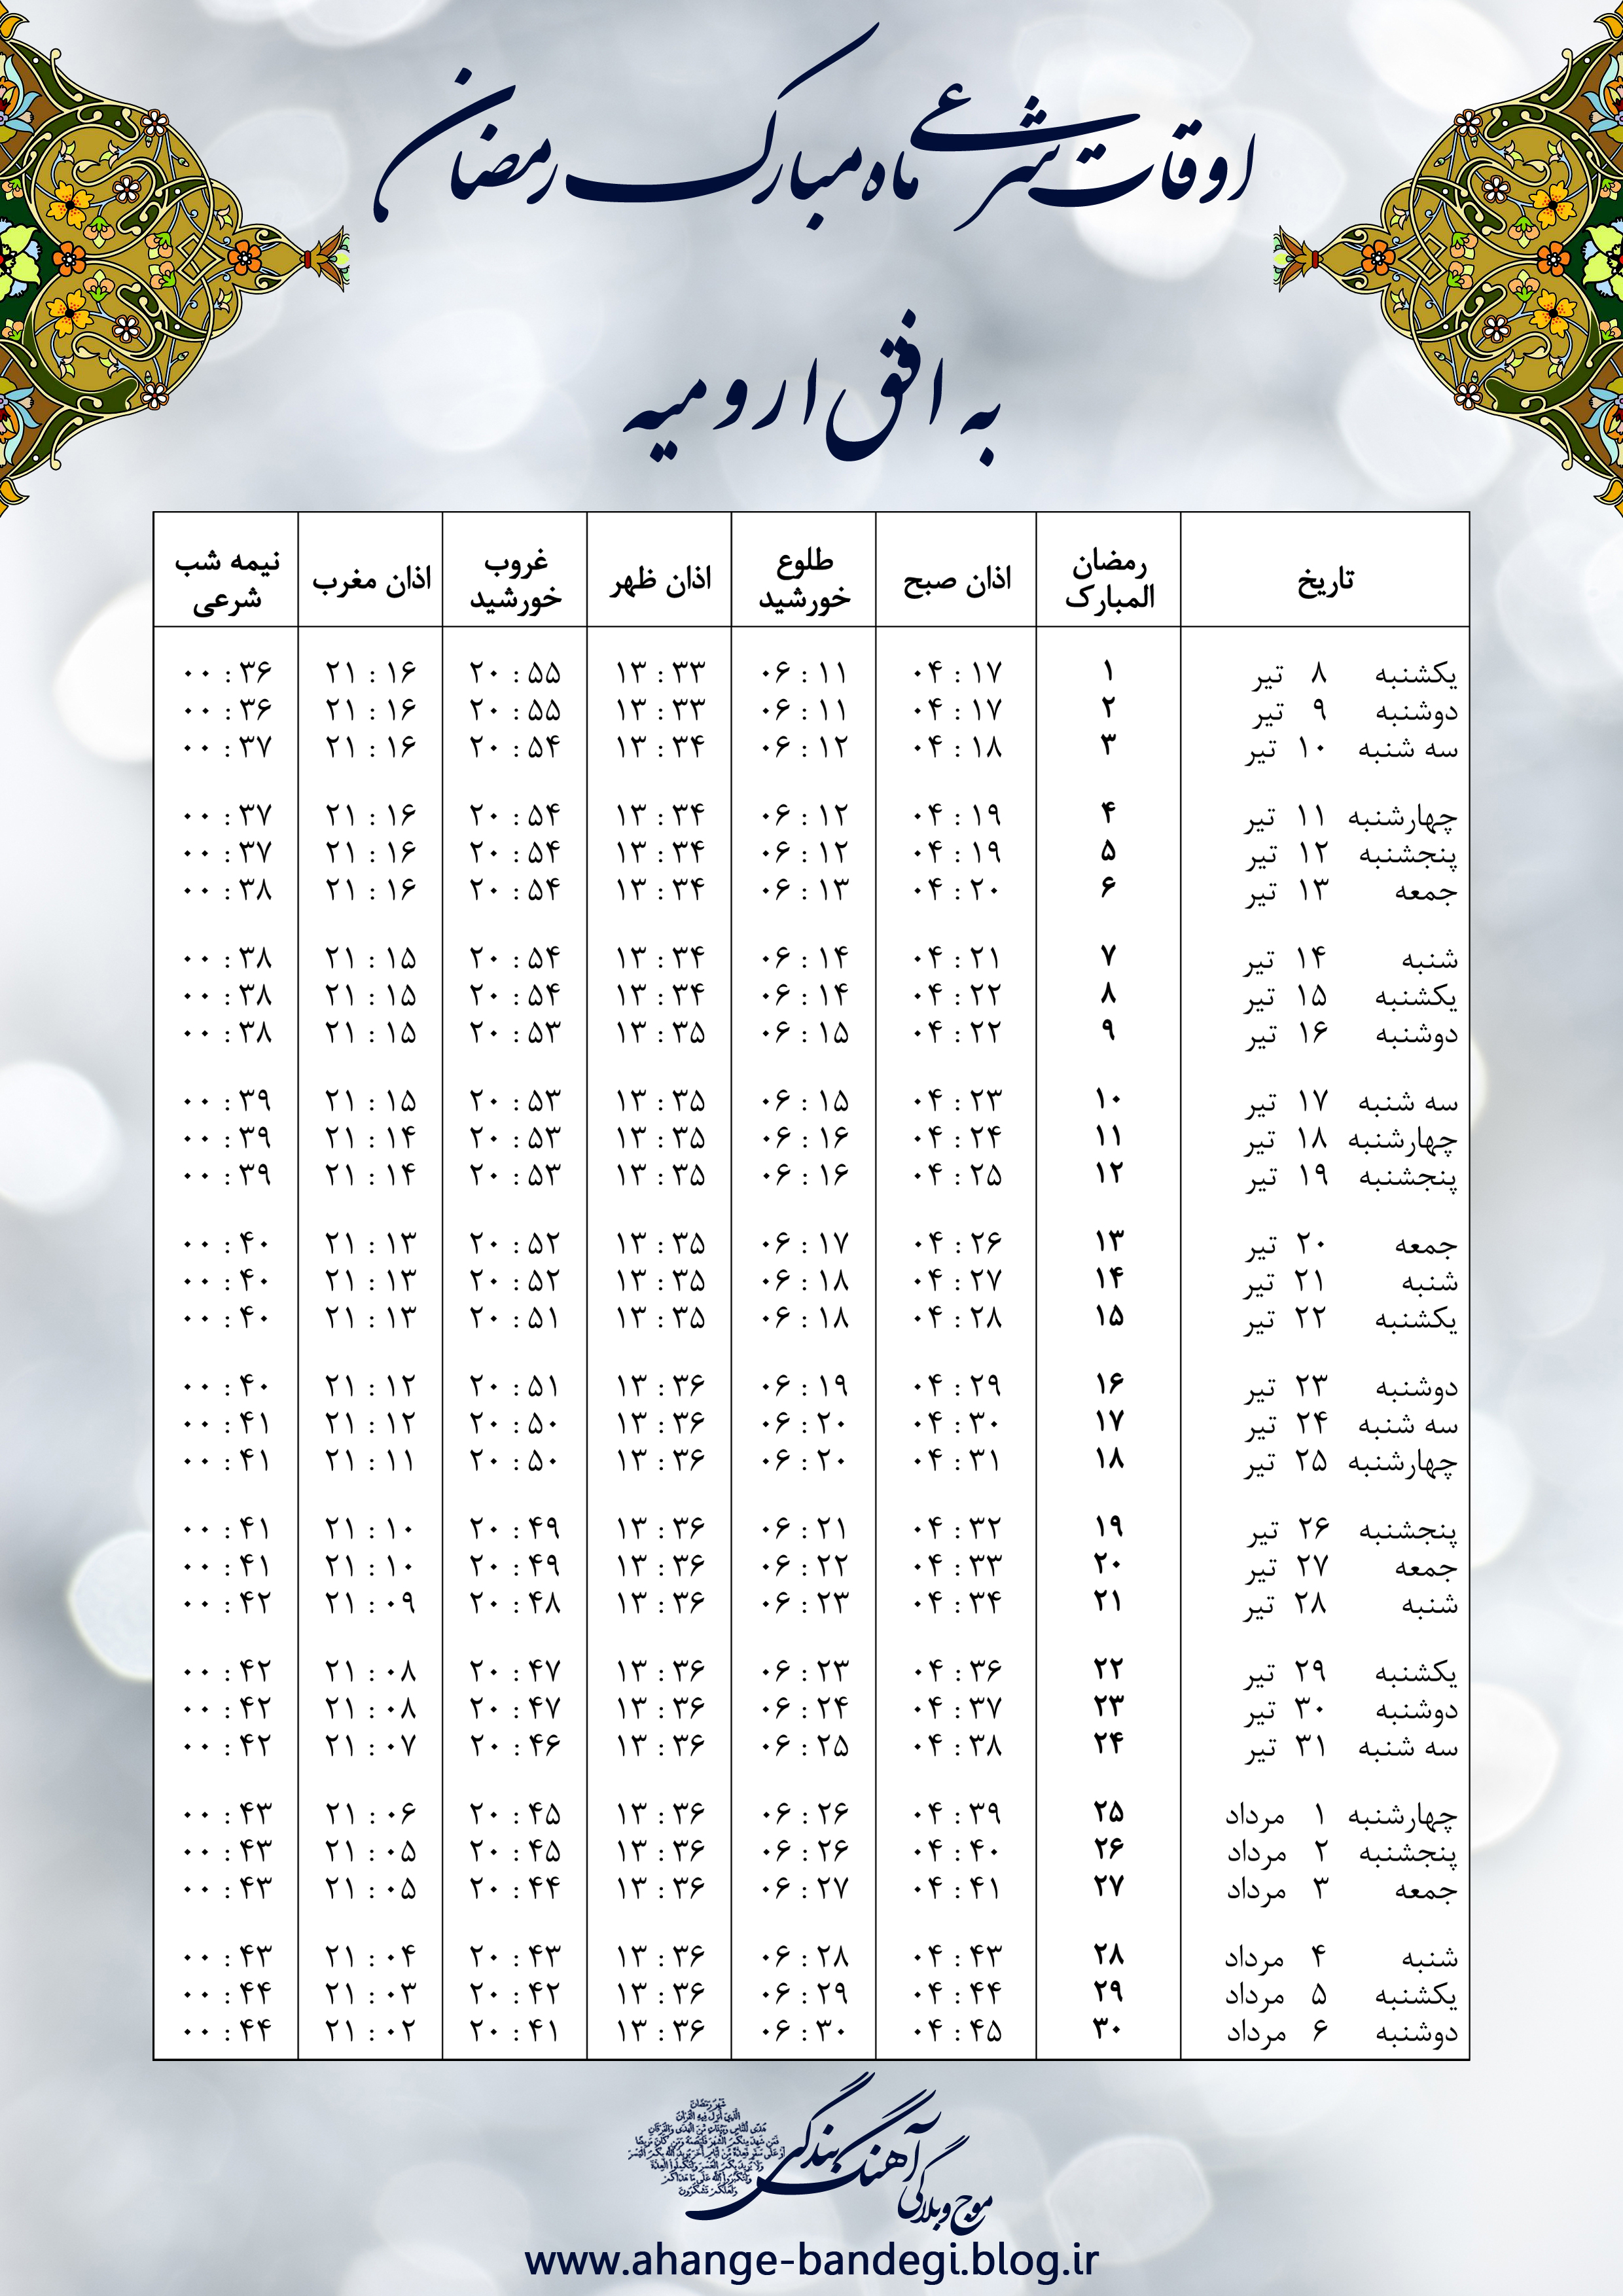 اوقات شرعی ماه مبارک رمضان
به افق ارومیه
تاریخ رمضان المبارک اذان صبح طلوع خورشید اذان ظهر غروب خورشید اذان مغرب نیمه شب شرعی
یکشنبه ۸ تیر ۱ ۰۴:۱۷ ۰۶:۱۱ ۱۳:۳۳ ۲۰:۵۵ ۲۱:۱۶ ۰۰:۳۶
دوشنبه ۹ تیر ۲ ۰۴:۱۷ ۰۶:۱۱ ۱۳:۳۳ ۲۰:۵۵ ۲۱:۱۶ ۰۰:۳۶
سه شنبه ۱۰ تیر ۳ ۰۴:۱۸ ۰۶:۱۲ ۱۳:۳۴ ۲۰:۵۴ ۲۱:۱۶ ۰۰:۳۷
چهارشنبه ۱۱ تیر ۴ ۰۴:۱۹ ۰۶:۱۲ ۱۳:۳۴ ۲۰:۵۴ ۲۱:۱۶ ۰۰:۳۷
پنجشنبه ۱۲ تیر ۵ ۰۴:۱۹ ۰۶:۱۲ ۱۳:۳۴ ۲۰:۵۴ ۲۱:۱۶ ۰۰:۳۷
جمعه ۱۳ تیر ۶ ۰۴:۲۰ ۰۶:۱۳ ۱۳:۳۴ ۲۰:۵۴ ۲۱:۱۶ ۰۰:۳۸
شنبه ۱۴ تیر ۷ ۰۴:۲۱ ۰۶:۱۴ ۱۳:۳۴ ۲۰:۵۴ ۲۱:۱۵ ۰۰:۳۸
یکشنبه ۱۵ تیر ۸ ۰۴:۲۲ ۰۶:۱۴ ۱۳:۳۴ ۲۰:۵۴ ۲۱:۱۵ ۰۰:۳۸
دوشنبه ۱۶ تیر ۹ ۰۴:۲۲ ۰۶:۱۵ ۱۳:۳۵ ۲۰:۵۳ ۲۱:۱۵ ۰۰:۳۸
سه شنبه ۱۷ تیر ۱۰ ۰۴:۲۳ ۰۶:۱۵ ۱۳:۳۵ ۲۰:۵۳ ۲۱:۱۵ ۰۰:۳۹
چهارشنبه ۱۸ تیر ۱۱ ۰۴:۲۴ ۰۶:۱۶ ۱۳:۳۵ ۲۰:۵۳ ۲۱:۱۴ ۰۰:۳۹
پنجشنبه ۱۹ تیر ۱۲ ۰۴:۲۵ ۰۶:۱۶ ۱۳:۳۵ ۲۰:۵۳ ۲۱:۱۴ ۰۰:۳۹
جمعه ۲۰ تیر ۱۳ ۰۴:۲۶ ۰۶:۱۷ ۱۳:۳۵ ۲۰:۵۲ ۲۱:۱۳ ۰۰:۴۰
شنبه ۲۱ تیر ۱۴ ۰۴:۲۷ ۰۶:۱۸ ۱۳:۳۵ ۲۰:۵۲ ۲۱:۱۳ ۰۰:۴۰
یکشنبه ۲۲ تیر ۱۵ ۰۴:۲۸ ۰۶:۱۸ ۱۳:۳۵ ۲۰:۵۱ ۲۱:۱۳ ۰۰:۴۰
دوشنبه ۲۳ تیر ۱۶ ۰۴:۲۹ ۰۶:۱۹ ۱۳:۳۶ ۲۰:۵۱ ۲۱:۱۲ ۰۰:۴۰
سه شنبه ۲۴ تیر ۱۷ ۰۴:۳۰ ۰۶:۲۰ ۱۳:۳۶ ۲۰:۵۰ ۲۱:۱۲ ۰۰:۴۱
چهارشنبه ۲۵ تیر ۱۸ ۰۴:۳۱ ۰۶:۲۰ ۱۳:۳۶ ۲۰:۵۰ ۲۱:۱۱ ۰۰:۴۱
پنجشنبه ۲۶ تیر ۱۹ ۰۴:۳۲ ۰۶:۲۱ ۱۳:۳۶ ۲۰:۴۹ ۲۱:۱۰ ۰۰:۴۱
جمعه ۲۷ تیر ۲۰ ۰۴:۳۳ ۰۶:۲۲ ۱۳:۳۶ ۲۰:۴۹ ۲۱:۱۰ ۰۰:۴۱
شنبه ۲۸ تیر ۲۱ ۰۴:۳۴ ۰۶:۲۳ ۱۳:۳۶ ۲۰:۴۸ ۲۱:۰۹ ۰۰:۴۲
یکشنبه ۲۹ تیر ۲۲ ۰۴:۳۶ ۰۶:۲۳ ۱۳:۳۶ ۲۰:۴۷ ۲۱:۰۸ ۰۰:۴۲
دوشنبه ۳۰ تیر ۲۳ ۰۴:۳۷ ۰۶:۲۴ ۱۳:۳۶ ۲۰:۴۷ ۲۱:۰۸ ۰۰:۴۲
سه شنبه ۳۱ تیر ۲۴ ۰۴:۳۸ ۰۶:۲۵ ۱۳:۳۶ ۲۰:۴۶ ۲۱:۰۷ ۰۰:۴۲
چهارشنبه ۱ مرداد ۲۵ ۰۴:۳۹ ۰۶:۲۶ ۱۳:۳۶ ۲۰:۴۵ ۲۱:۰۶ ۰۰:۴۳
پنجشنبه ۲ مرداد ۲۶ ۰۴:۴۰ ۰۶:۲۶ ۱۳:۳۶ ۲۰:۴۵ ۲۱:۰۵ ۰۰:۴۳
جمعه ۳ مرداد ۲۷ ۰۴:۴۱ ۰۶:۲۷ ۱۳:۳۶ ۲۰:۴۴ ۲۱:۰۵ ۰۰:۴۳
شنبه ۴ مرداد ۲۸ ۰۴:۴۳ ۰۶:۲۸ ۱۳:۳۶ ۲۰:۴۳ ۲۱:۰۴ ۰۰:۴۳
یکشنبه ۵ مرداد ۲۹ ۰۴:۴۴ ۰۶:۲۹ ۱۳:۳۶ ۲۰:۴۲ ۲۱:۰۳ ۰۰:۴۴
دوشنبه ۶ مرداد ۳۰ ۰۴:۴۵ ۰۶:۳۰ ۱۳:۳۶ ۲۰:۴۱ ۲۱:۰۲ ۰۰:۴۴
موج وبلاگی آهنگ بندگی
www.ahange-bandegi.blog.ir